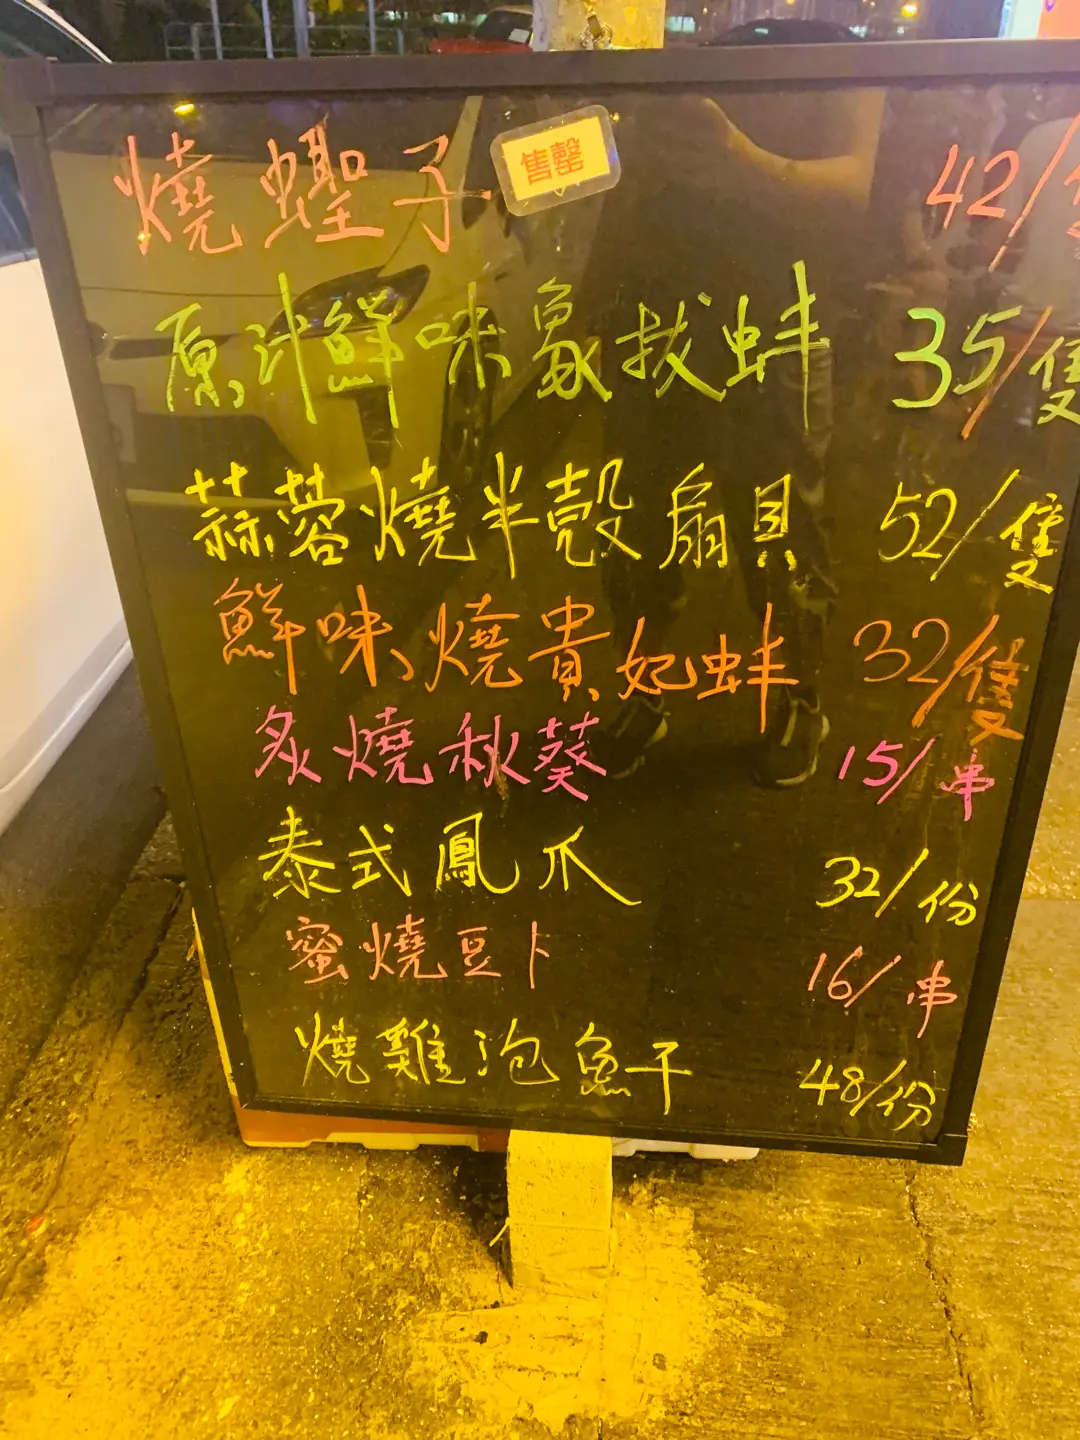 燒蟶子 售罄 42/隻
原汁鮮味象拔蚌 35/隻
蒜蓉燒半殼扇貝 52/隻
鮮味燒貴妃蚌 32/隻
炙燒秋葵 15/串
泰式鳳爪 32/份
蜜燒豆卜 16/串
燒雞泡魚干 48/份